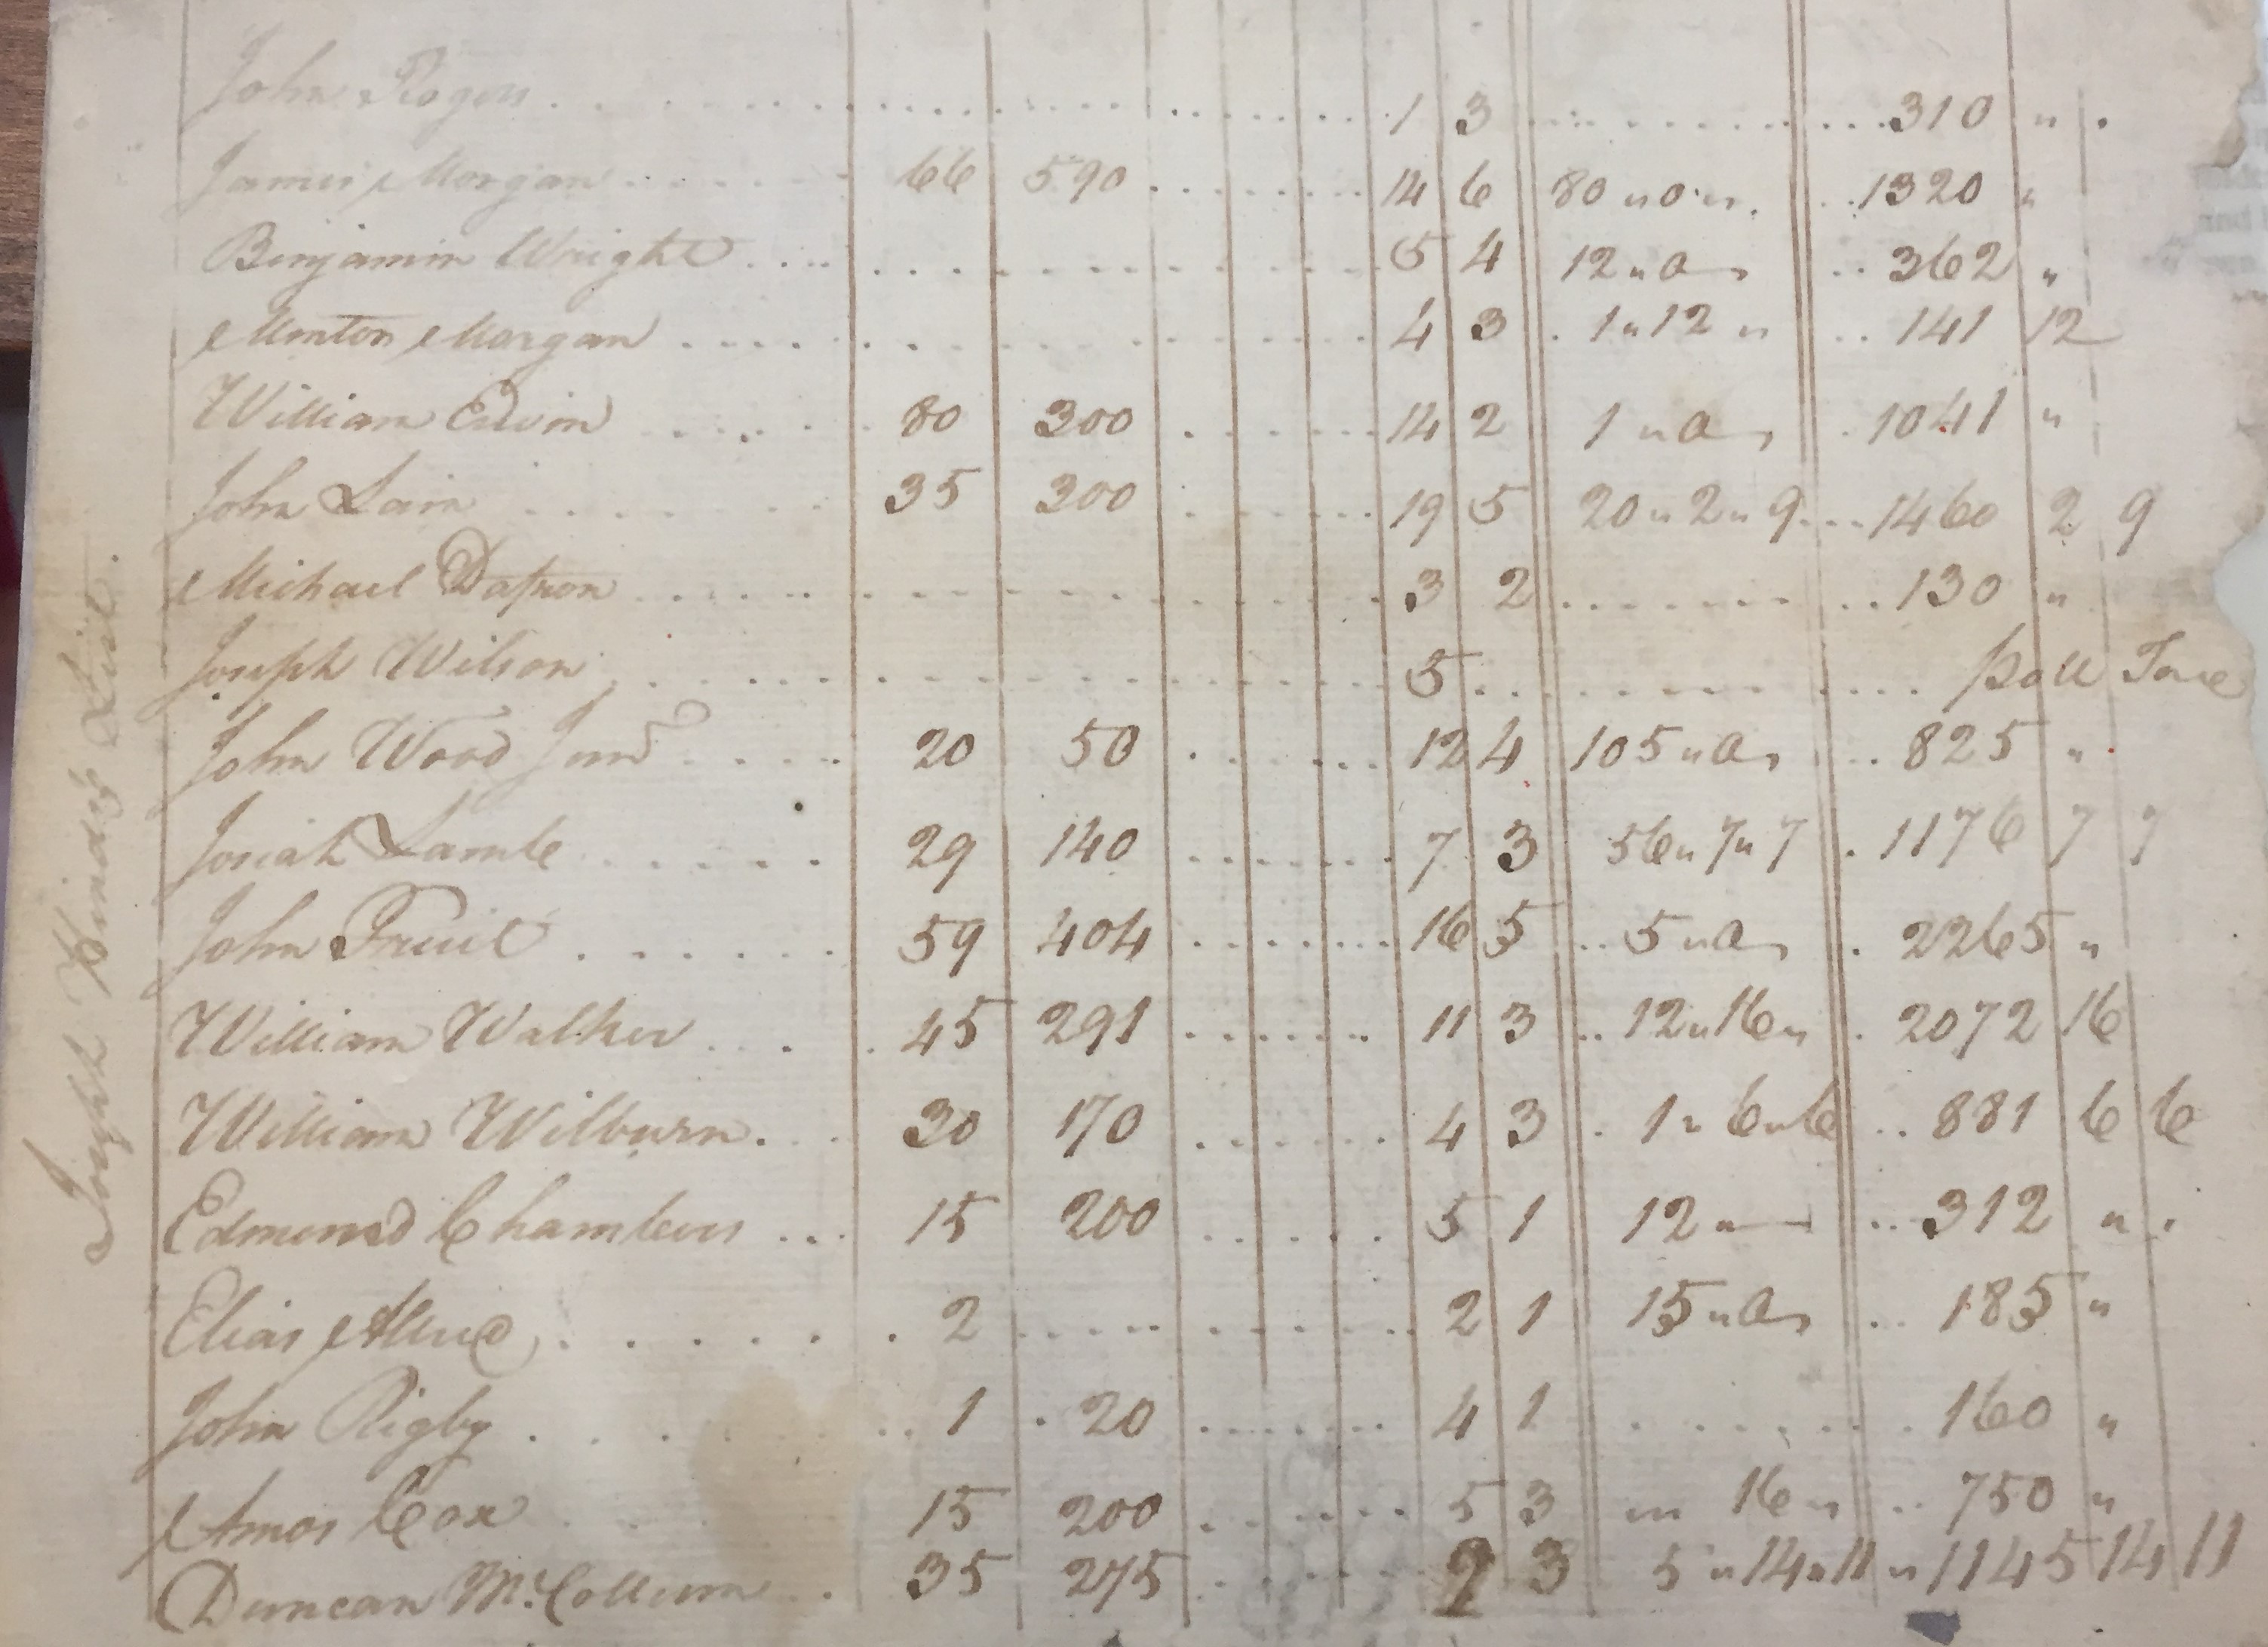 John Rogers 1 3 310 " .
James Morgan 66 590 14 6 80 " 0 " 1320 "
Binjamin Wright 5 4 12 " 0 362 "
Minton Morgan 4 3 1 " 12 " 141 12
William Ervin 80 300 14 2 1 " 0 1041 "
John Lain 35 300 19 5 20 " 2 " 9 1460 2 9
Michael 3 2 130 "
Joseph Wilson 5 poll Taxe
John Wood Junr 20 50 12 4 105 " 0 825 "
Josiah Lamb 29 140 7 3 56 " 7 " 7 1176 7 7
John Fruit 59 404 16 5 5 " 0 2265 "
William Walker 45 291 11 3 12 " 16 " 2072 16
William Wilburn 30 170 4 3 1 " 6 " 6 881 6 6
Edmund Chambers 15 200 5 1 12 " 312 " .
Elias Alred 2 2 1 15 " 0 185 "
John Rigby 1 20 4 1 160 "
Amos Cox 15 200 5 3 " 16 " 750 "
Duncan McCollum 35 275 9 3 5 " 14 " 11 " 1145 14 11
Joseph Hinds's List.